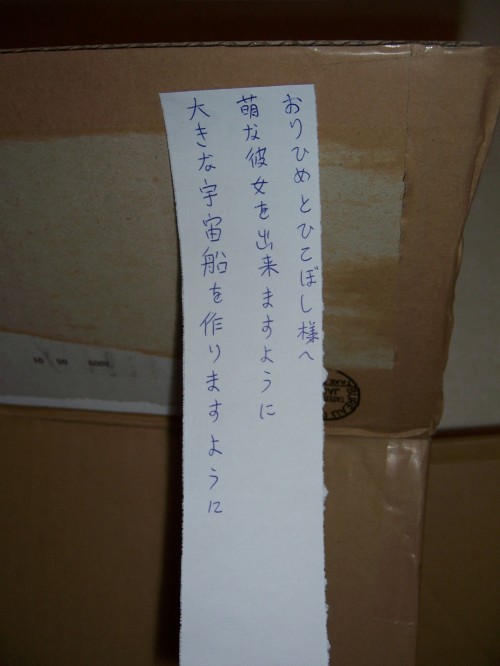 おりひめとひこぼし様へ
萌な彼女を出来ますように
大きな宇宙船を作りますように